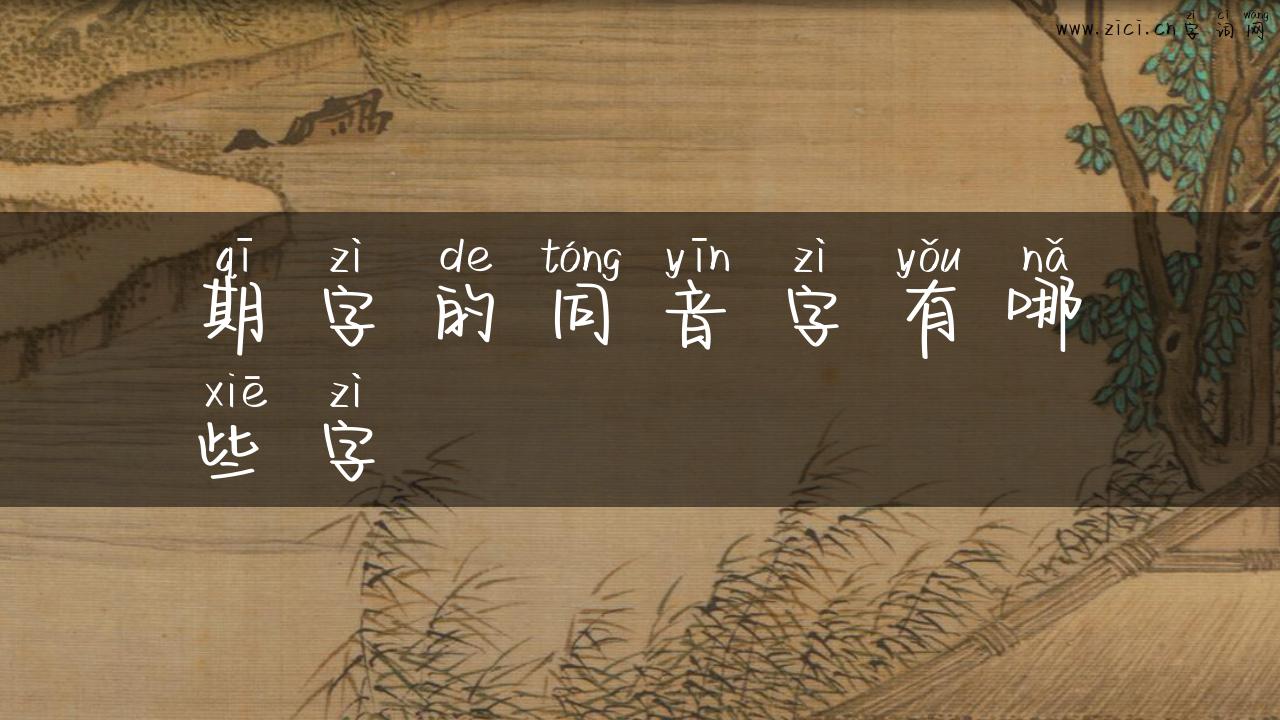 zì cí wǎng
www.zici.cn字词网
qī zì de tóng yīn zì yǒu nǎ
期字的同音字有哪
xiē zì
些字